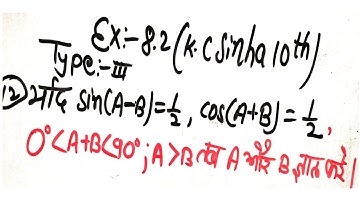 Ex:- 8.2 (K.C Sinha 10th)
Type:- III
(2) यदि sin(A-B)=1/2, cos(A+B)=1/2,
0°<A+B<90°; A>B तब A और B ज्ञात करें।